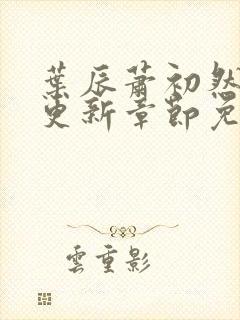 葉辰蕭初然
更新章節免
雲重影